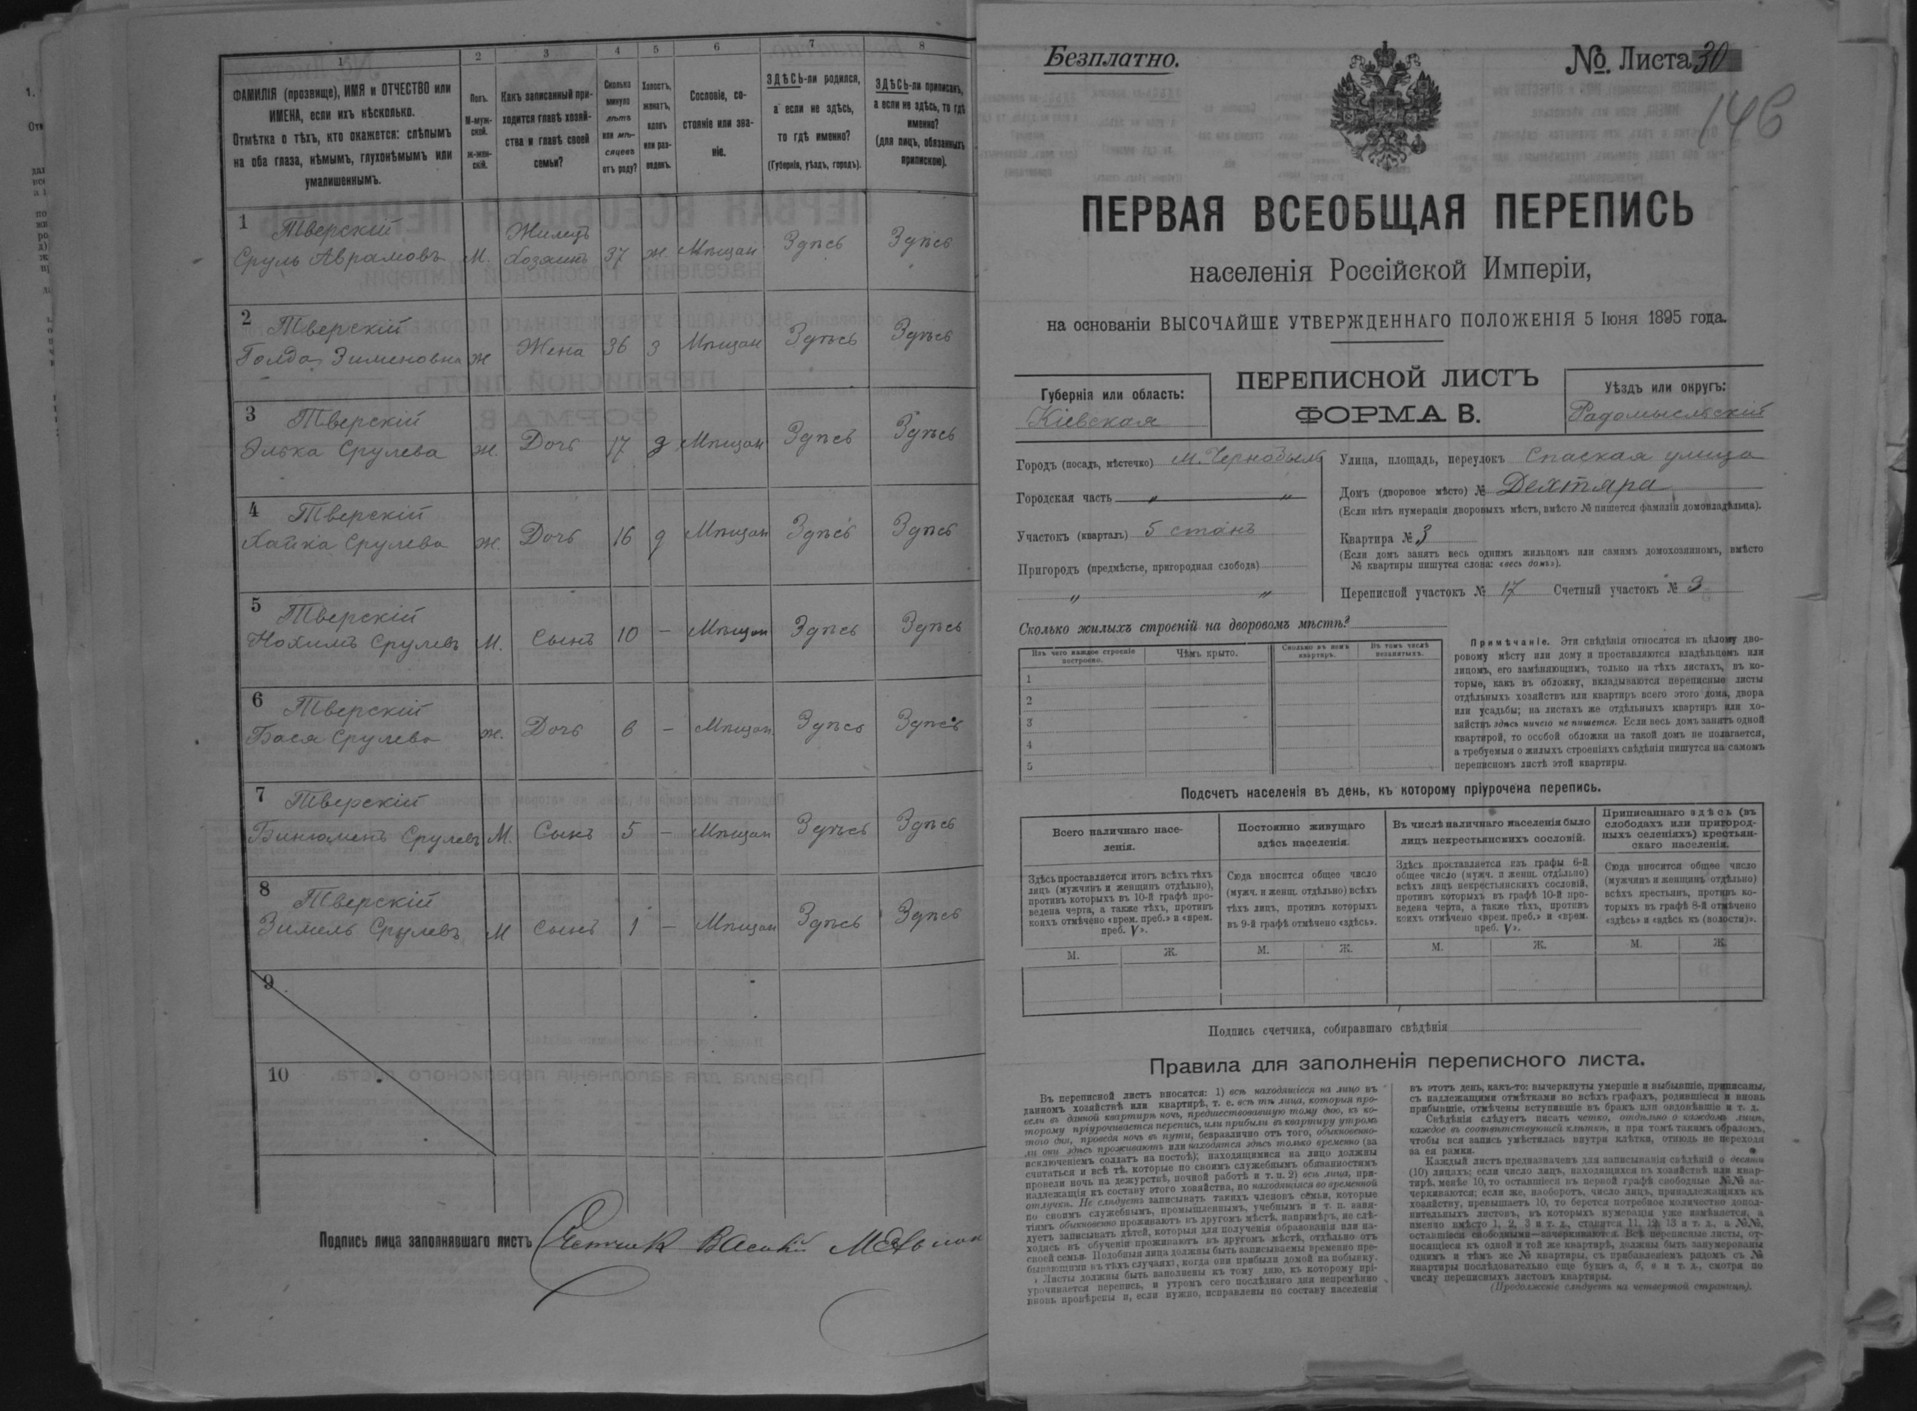 1 2 3 4 5 6 7 8
ФАМИЛІЯ (прозвище), ИМЯ и ОТЧЕСТВО или
ИМЕНА, если ихъ нѣсколько.
Отмѣтка о тѣхъ, кто окажется: слѣпымъ
на оба глаза, нѣмымъ, глухонѣмымъ или
умалишеннымъ.
Полъ.
М-муж-
ской.
Ж-жен-
скій.
Какъ записанный при-
ходится главѣ хозяй-
ства и главѣ своей
семьи?
Сколько
минуло
лѣтъ
или мѣ-
сяцевъ
отъ роду?
Холостъ,
женатъ,
вдовъ
или раз-
веденъ.
Сословіе, со-
стояніе или зва-
ніе.
ЗДѢСЬ-ли родился,
а если не здѣсь,
то гдѣ именно?
(Губернія, уѣздъ, городъ).
ЗДѢСЬ-ли приписанъ,
а если не здѣсь, то гдѣ
именно?
(для лицъ, обязанныхъ
припискою).
1 Тверскій Жилецъ
Сруль Аврамовъ М. Хозяинъ 37 ж. Мѣщан Здѣсь Здѣсь
2 Тверскій
Голда Зименовна ж Жена 36 з Мѣщан Здѣсь Здѣсь
3 Тверскій
Элька Срулева ж. Дочь 17 д Мѣщан Здѣсь Здѣсь
4 Тверскій
Хайка Срулева ж. Дочь 16 д Мѣщан Здѣсь Здѣсь
5 Тверскій
Нохимъ Срулевъ М. Сынъ 10 — Мѣщан Здѣсь Здѣсь
6 Тверскій
Бася Срулева ж. Дочь 6 — Мѣщан Здѣсь Здѣсь
7 Тверскій
Бинюменъ Срулевъ М. Сынъ 5 — Мѣщан Здѣсь Здѣсь
8 Тверскій
Зимель Срулевъ М Сынъ 1 — Мѣщан Здѣсь Здѣсь
9
10
Подпись лица заполнявшаго листъ Счетчик
Безплатно.
№ Листа 30
146
ПЕРВАЯ ВСЕОБЩАЯ ПЕРЕПИСЬ
населенія Россійской Имперіи,
на основаніи ВЫСОЧАЙШЕ УТВЕРЖДЕННАГО ПОЛОЖЕНІЯ 5 Іюня 1895 года.
ПЕРЕПИСНОЙ ЛИСТЪ
ФОРМА В.
Губернія или область:
Кіевская
Уѣздъ или округъ:
Радомысльскій
Городъ (посадъ, мѣстечко) м. Чернобыль
Городская часть „ „
Участокъ (кварталъ) 5 станъ
Пригородъ (предмѣстье, пригородная слобода)
„ „
Улица, площадь, переулокъ Спаская улица
Домъ (дворовое мѣсто) № Дехтяра
(Если нѣтъ нумераціи дворовыхъ мѣстъ, вмѣсто № пишется фамилія домовладѣльца).
Квартира № 3
(Если домъ занятъ весь однимъ жильцомъ или самимъ домохозяиномъ, вмѣсто
№ квартиры пишутся слова: «весь домъ»).
Переписной участокъ № 17 Счетный участокъ № 3
Сколько жилыхъ строеній на дворовомъ мѣстѣ?
Изъ чего каждое строеніе
построено.
Чѣмъ крыто.
Сколько въ немъ
квартиръ.
Въ томъ числѣ
незанятыхъ.
1
2
3
4
5
Примѣчаніе. Эти свѣдѣнія относятся къ цѣлому дво-
ровому мѣсту или дому и проставляются владѣльцемъ или
лицомъ, его замѣняющимъ, только на тѣхъ листахъ, въ ко-
торые, какъ въ обложку, вкладываются переписные листы
отдѣльныхъ хозяйствъ или квартиръ всего этого дома, двора
или усадьбы; на листахъ же отдѣльныхъ квартиръ или хо-
зяйствъ здѣсь ничего не пишется. Если весь домъ занятъ одной
квартирой, то особой обложки на такой домъ не полагается,
а требуемыя о жилыхъ строеніяхъ свѣдѣнія пишутся на самомъ
переписномъ листѣ этой квартиры.
Подсчетъ населенія въ день, къ которому пріурочена перепись.
Всего наличнаго насе-
ленія.
Здѣсь проставляется итогъ всѣхъ тѣхъ
лицъ (мужчинъ и женщинъ отдѣльно),
противъ которыхъ въ 10-й графѣ про-
ведена черта, а также тѣхъ, противъ
коихъ отмѣчено «врем. преб.» и «врем.
преб. V».
Постоянно живущаго
здѣсь населенія.
Сюда вносится общее число
(мужч. и женщ. отдѣльно) всѣхъ
тѣхъ лицъ, противъ которыхъ
въ 9-й графѣ отмѣчено «здѣсь».
Въ числѣ наличнаго населенія было
лицъ некрестьянскихъ сословій.
Здѣсь проставляется изъ графы 6-й
общее число (мужч. и женщ. отдѣльно)
всѣхъ лицъ некрестьянскихъ сословій,
противъ которыхъ въ графѣ 10-й про-
ведена черта, а также тѣхъ, противъ
коихъ отмѣчено «врем. преб.» и «врем.
преб. V».
Приписаннаго здѣсь (въ
слободахъ или пригород-
ныхъ селеніяхъ) крестьян-
скаго населенія.
Сюда вносится общее число
(мужчинъ и женщинъ отдѣльно)
всѣхъ крестьянъ, противъ ко-
торыхъ въ графѣ 8-й отмѣчено
«здѣсь» и «здѣсь къ (волости)».
М. Ж. М. Ж. М. Ж. М. Ж.
Подпись счетчика, собиравшаго свѣдѣнія
Правила для заполненія переписного листа.
Въ переписной листъ вносятся: 1) всѣ находящіеся на лицо въ
данномъ хозяйствѣ или квартирѣ, т. е. всѣ тѣ лица, которыя про-
вели въ данной квартирѣ ночь, предшествовавшую тому дню, къ ко-
торому пріурочивается перепись, или прибыли въ квартиру утромъ
того дня, проведя ночь въ пути, безразлично отъ того, обыкновенно-
ли они здѣсь проживаютъ или находятся здѣсь только временно (за
исключеніемъ солдатъ на постоѣ); находящимися на лицо должны
считаться и всѣ тѣ, которые по своимъ служебнымъ обязанностямъ
провели ночь на дежурствѣ, ночной работѣ и т. п. 2) всѣ лица, при-
надлежащія къ составу этого хозяйства, но находящіяся во временной
отлучкѣ. Не слѣдуетъ записывать такихъ членовъ семьи, которые
по своимъ служебнымъ, промышленнымъ, учебнымъ и т. п. заня-
тіямъ обыкновенно проживаютъ въ другомъ мѣстѣ, напримѣръ, не слѣ-
дуетъ записывать дѣтей, которыя для полученія образованія или на-
ходясь въ обученіи проживаютъ въ другомъ мѣстѣ, отдѣльно отъ
своей семьи. Подобныя лица должны быть записываемы временно пре-
бывающими въ тѣхъ случаяхъ, когда они прибыли домой на побывку.
Листы должны быть заполнены къ тому дню, къ которому прі-
урочивается перепись, и утромъ сего послѣдняго дня непремѣнно
вновь провѣрены и, если нужно, исправлены по составу населенія
въ этотъ день, какъ-то: вычеркнуты умершіе и выбывшіе, приписаны,
съ надлежащими отмѣтками во всѣхъ графахъ, родившіеся и вновь
прибывшіе, отмѣчены вступившіе въ бракъ или овдовѣвшіе и т. д.
Свѣдѣнія слѣдуетъ писать четко, отдѣльно о каждомъ лицѣ,
каждое въ соотвѣтствующей клѣткѣ, и при томъ такимъ образомъ,
чтобы вся запись умѣстилась внутри клѣтки, отнюдь не переходя
за ея рамки.
Каждый листъ предназначенъ для записыванія свѣдѣній о десяти
(10) лицахъ; если число лицъ, находящихся въ хозяйствѣ или квар-
тирѣ, менѣе 10, то оставшіеся въ первой графѣ свободные №№ за-
черкиваются; если же, наоборотъ, число лицъ, принадлежащихъ къ
хозяйству, превышаетъ 10, то берется потребное количество допол-
нительныхъ листовъ, въ которыхъ нумерація уже измѣняется, а
именно вмѣсто 1, 2, 3 и т. д. ставится 11, 12, 13 и т. д., а №№,
оставшіеся свободными—зачеркиваются. Всѣ переписные листы, от-
носящіеся къ одной и той же квартирѣ, должны быть занумерованы
однимъ и тѣмъ же № квартиры, съ прибавленіемъ рядомъ съ №
квартиры послѣдовательно еще буквъ а, б, в и т. д., смотря по
числу переписныхъ листовъ квартиры.
(Продолженіе слѣдуетъ на четвертой страницѣ).